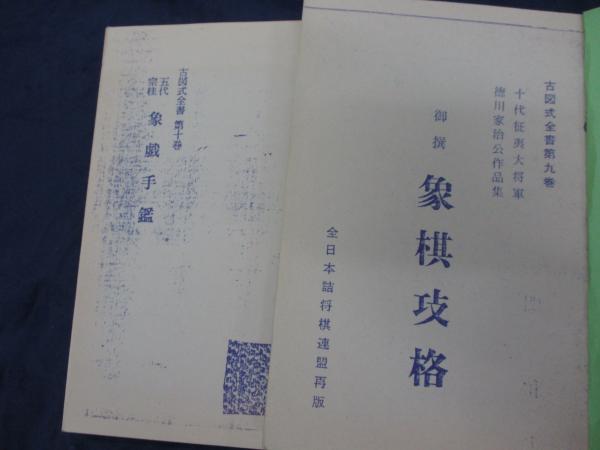 古図式全書第九巻
十代征夷大将軍
徳川家治公作品集
御撰
象棋攻格
全日本詰将棋連盟再版
古図式全書 第十巻
五代
宗桂
象戯手鑑